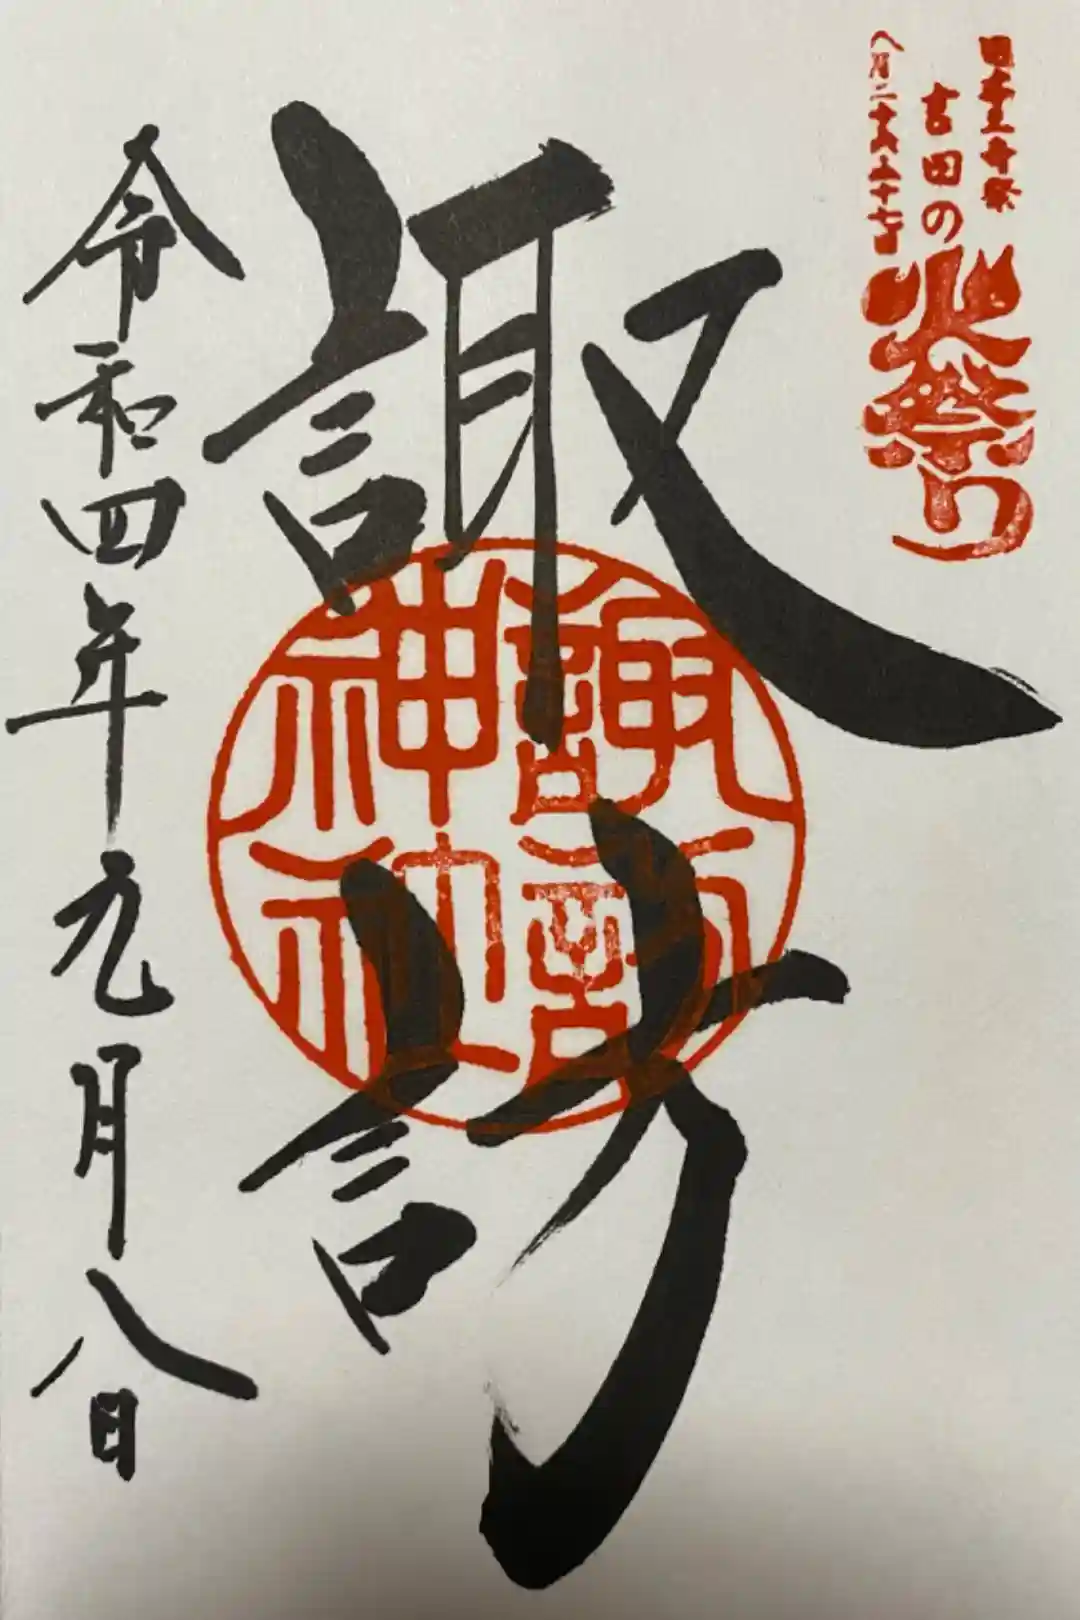 日本三奇祭
吉田の火祭り
八月二十六、二十七日
諏訪
諏訪
神社
令和四年九月八日